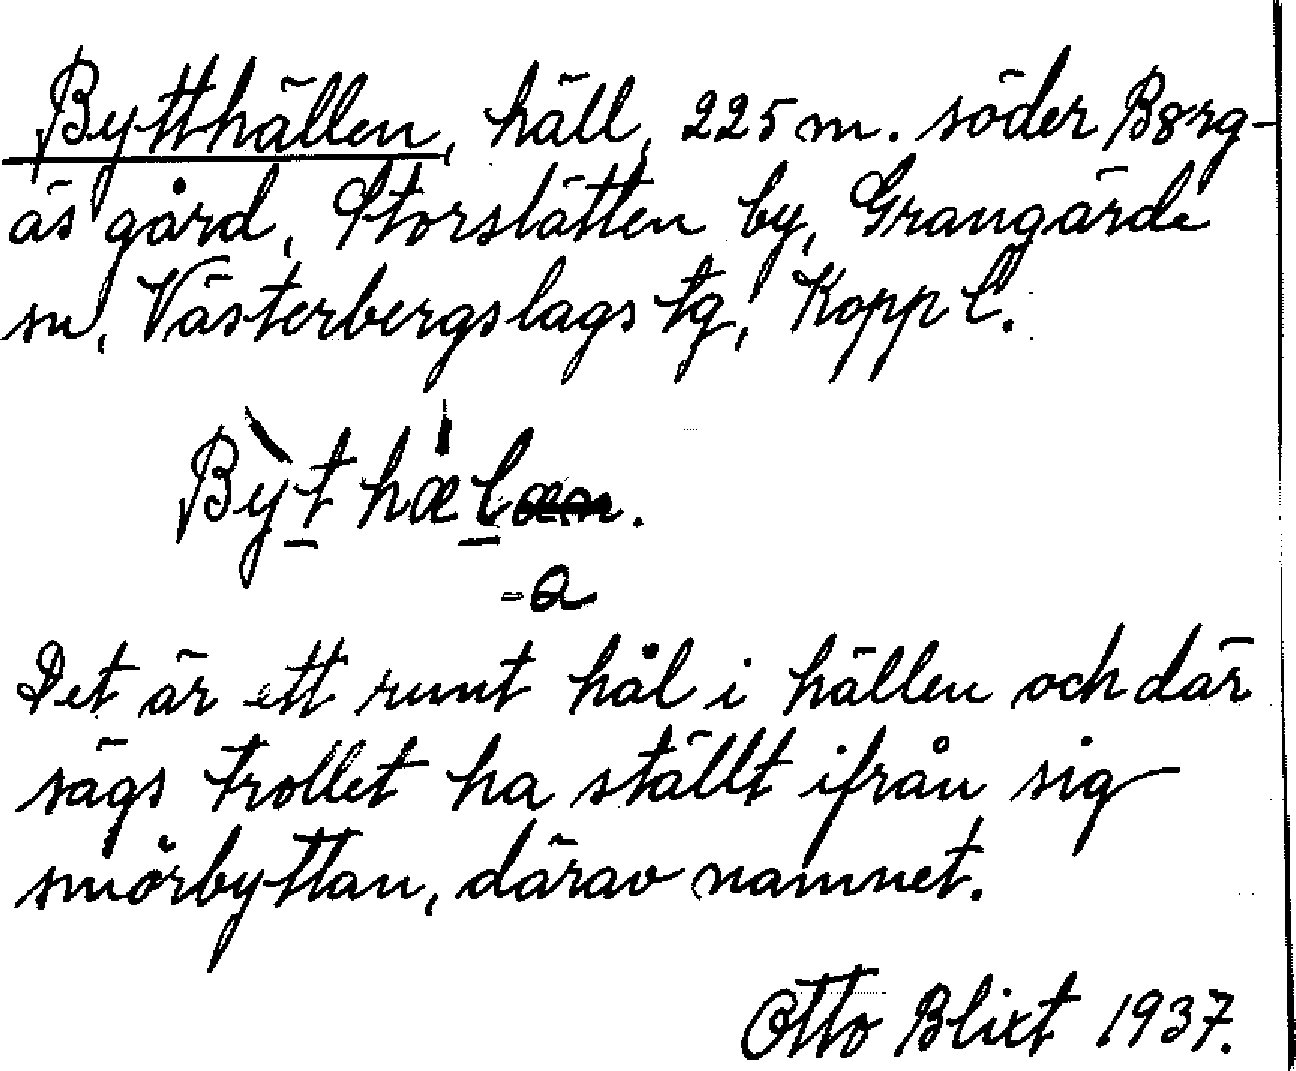 Bytthällen, häll, 225 m. söder Borg-
ås gård, Storslätten by, Grangärde
sn, Västerbergslags tg, Kopp l.
Bỳt hæ'l
-a
Det är ett runt hål i hällen och där
sägs trollet ha ställt ifrån sig
smörbyttan, därav namnet.
Otto Blixt 1937.